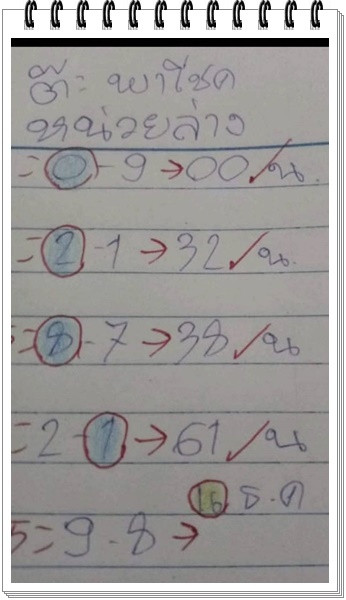 ต๊ะ พาโชค
หน่วยล่าง
= 0 - 9 → 00 ✓ น.
= 2 - 1 → 32 ✓ น.
5 = 8 - 7 → 38 ✓ น
= 2 - 1 → 61 ✓ น
16 ธ.ค
5 = 9 - 8 →